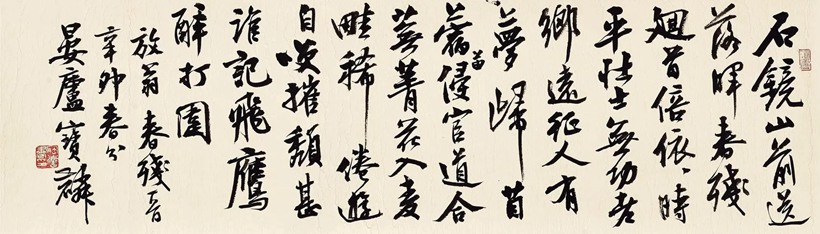 石鏡山前送
落暉春殘
廻首倍依〻時
平壯士無功老
鄉遠征人有
夢歸苜
蓿苗侵官道合
蕪菁花入麥
畦稀倦遊
自咲摧頹甚
誰記飛鷹
醉打圍
放翁春殘一首
辛卯春分
晏廬寶